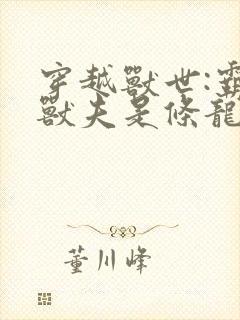 穿越獸世:霸
獸夫是條龍
董川峰